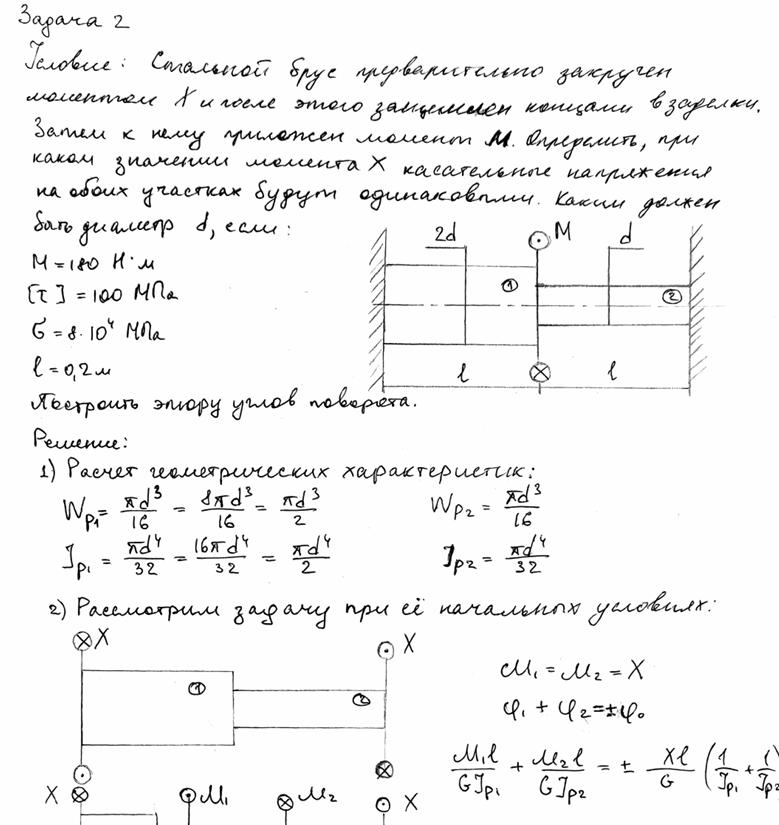 Задача 2
Условие: Стальной брус предварительно закручен
моментом X и после этого защемлен концами в заделки.
Затем к нему приложен момент M. Определить, при
каком значении момента X касательные напряжения
на обоих участках будут одинаковыми. Каким должен
быть диаметр d, если:
M = 180 Н·м
[τ] = 100 МПа
G = 8·10⁴ МПа
l = 0,2 м
2d M d
1 2
l l
Построить эпюру углов поворота.
Решение:
1) Расчет геометрических характеристик:
Wp₁ = πd³/16 = 8πd³/16 = πd³/2 Wp₂ = πd³/16
Jp₁ = πd⁴/32 = 16πd⁴/32 = πd⁴/2 Jp₂ = πd⁴/32
2) Рассмотрим задачу при её начальных условиях:
X X
1 2
M₁ = M₂ = X
φ₁ + φ₂ = ±φ₀
M₁l/GJp₁ + M₂l/GJp₂ = ± Xl/G (1/Jp₁ + 1/Jp₂)
X M₁ M₂ X